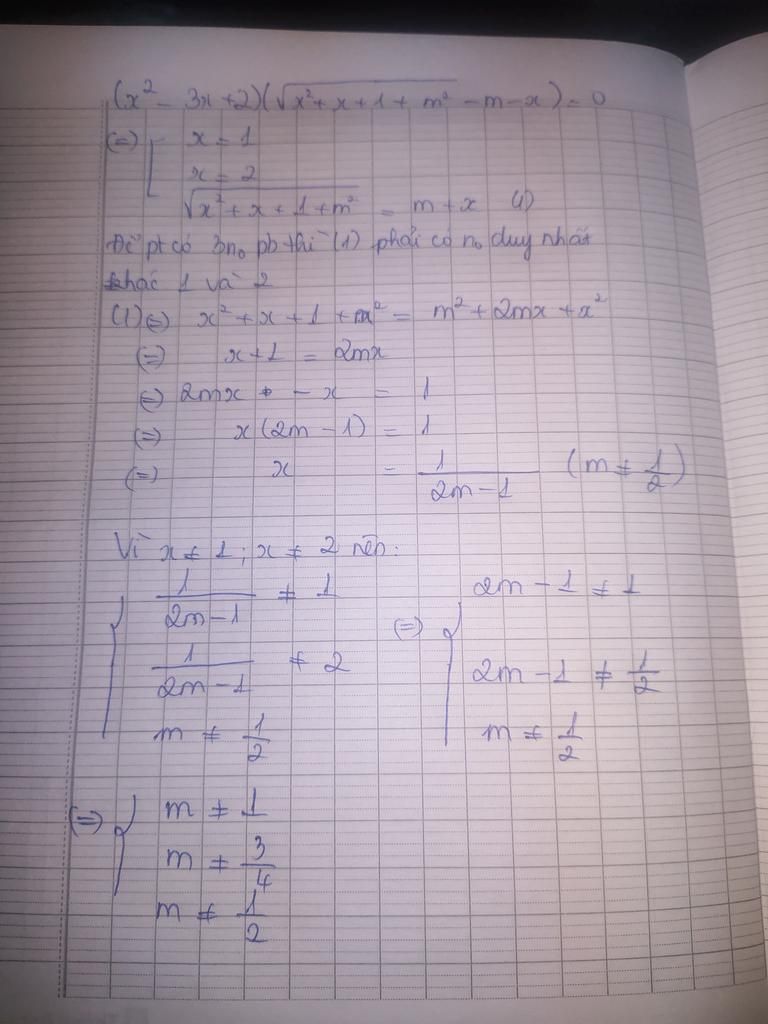 (x² - 3x + 2)(√(x² + x + 1 + m²) - m - x) = 0
(=) [ x = 1
x = 2
√(x² + x + 1 + m²) = m + x (1)
Để pt có 3n₀ pb thì (1) phải có n₀ duy nhất
khác 1 và 2
(1) (=) x² + x + 1 + m² = m² + 2mx + x²
(=) x + 1 = 2mx
(=) 2mx - x = 1
(=) x(2m - 1) = 1
(=) x = 1/(2m - 1) (m ≠ 1/2)
Vì x ≠ 1 ; x ≠ 2 nên:
{ 1/(2m - 1) ≠ 1 (=) { 2m - 1 ≠ 1
1/(2m - 1) ≠ 2 2m - 1 ≠ 1/2
m ≠ 1/2 m ≠ 1/2
(=) { m ≠ 1
m ≠ 3/4
m ≠ 1/2